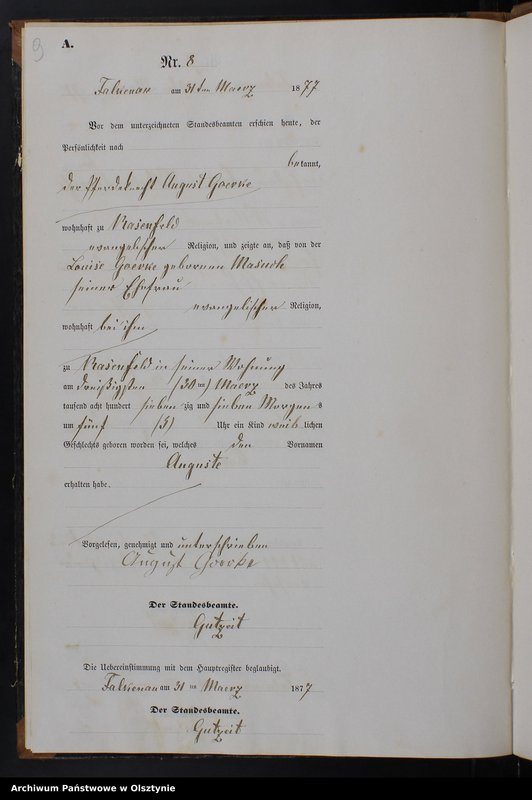 9
A.
Nr. 8
Falkenau am 31ten Maerz 1877
Vor dem unterzeichneten Standesbeamten erschien heute, der
Persönlichkeit nach
bekannt,
der Pferdeknecht August Goerke
wohnhaft zu Rosenfeld
evangelischer Religion, und zeigte an, daß von der
Louise Goerke geborenen Masuch
seiner Ehefrau
evangelischer Religion,
wohnhaft bei ihm
zu Rosenfeld in seiner Wohnung
am dreißigsten (30ten) Maerz des Jahres
tausend acht hundert siebenzig und sieben Morgens
um fünf (5) Uhr ein Kind weiblichen
Geschlechts geboren worden sei, welches den Vornamen
Auguste
erhalten habe.
Vorgelesen, genehmigt und unterschrieben
August Goerke
Der Standesbeamte.
Gutzeit
Die Uebereinstimmung mit dem Hauptregister beglaubigt.
Falkenau am 31ten Maerz 1877
Der Standesbeamte.
Gutzeit
Archiwum Państwowe w Olsztynie